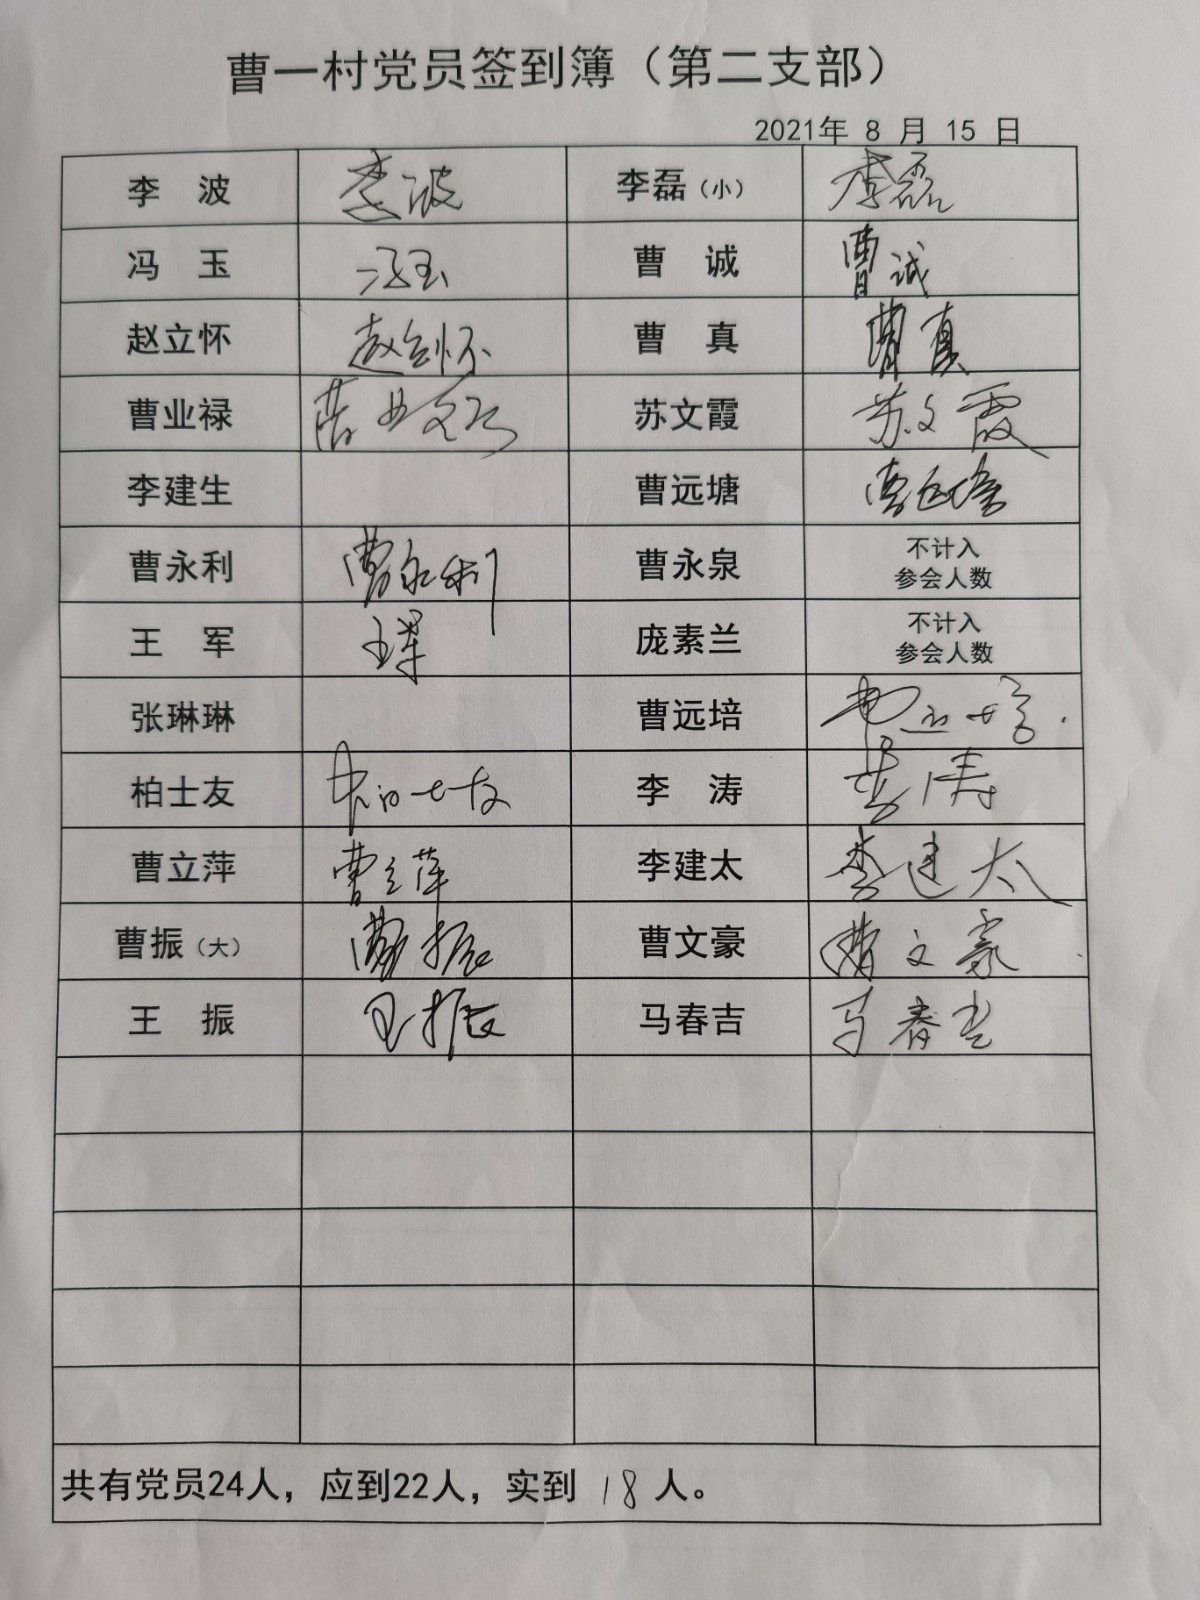 曹一村党员签到簿（第二支部）
2021年 8 月 15 日
李 波 李波 李磊（小） 李磊
冯 玉 冯玉 曹 诚 曹诚
赵立怀 赵立怀 曹 真 曹真
曹业禄 曹业禄 苏文霞 苏文霞
李建生 曹远塘 曹远塘
曹永利 曹永利 曹永泉 不计入
参会人数
王 军 王军 庞素兰 不计入
参会人数
张琳琳 曹远培 曹远培
柏士友 柏士友 李 涛 李涛
曹立萍 曹立萍 李建太 李建太
曹振（大） 曹振 曹文豪 曹文豪
王 振 王振 马春吉 马春吉
共有党员24人，应到22人，实到 18 人。